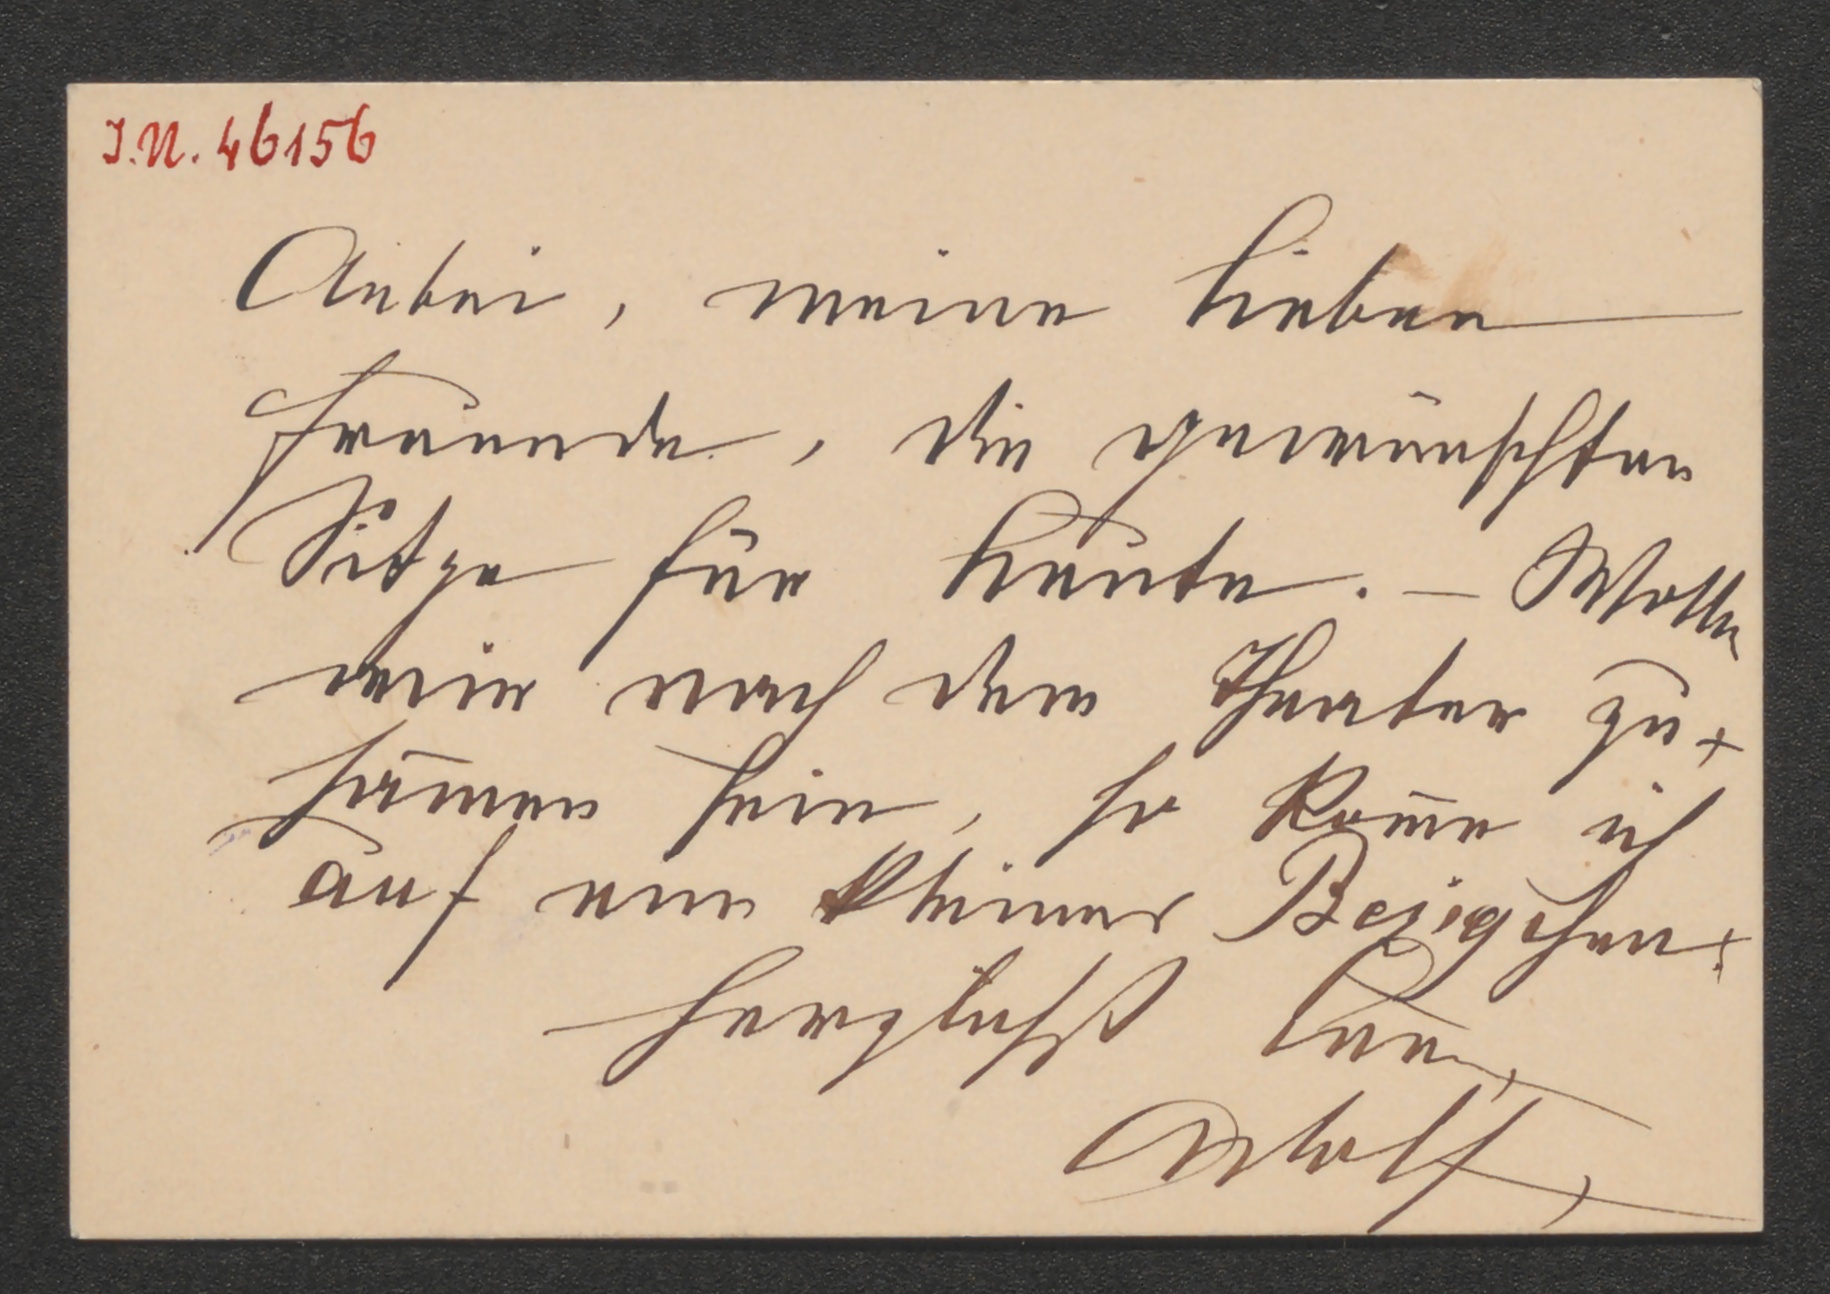 I.N. 46156
Anbei, meine lieben
Freunde, die gewünschten
Sitze für heute. – Wollen
wir nach dem Theater zu-
sam̄en sein, so kom̄e ich
auf ein kleines Bezigchen.
Herzlichst Euer